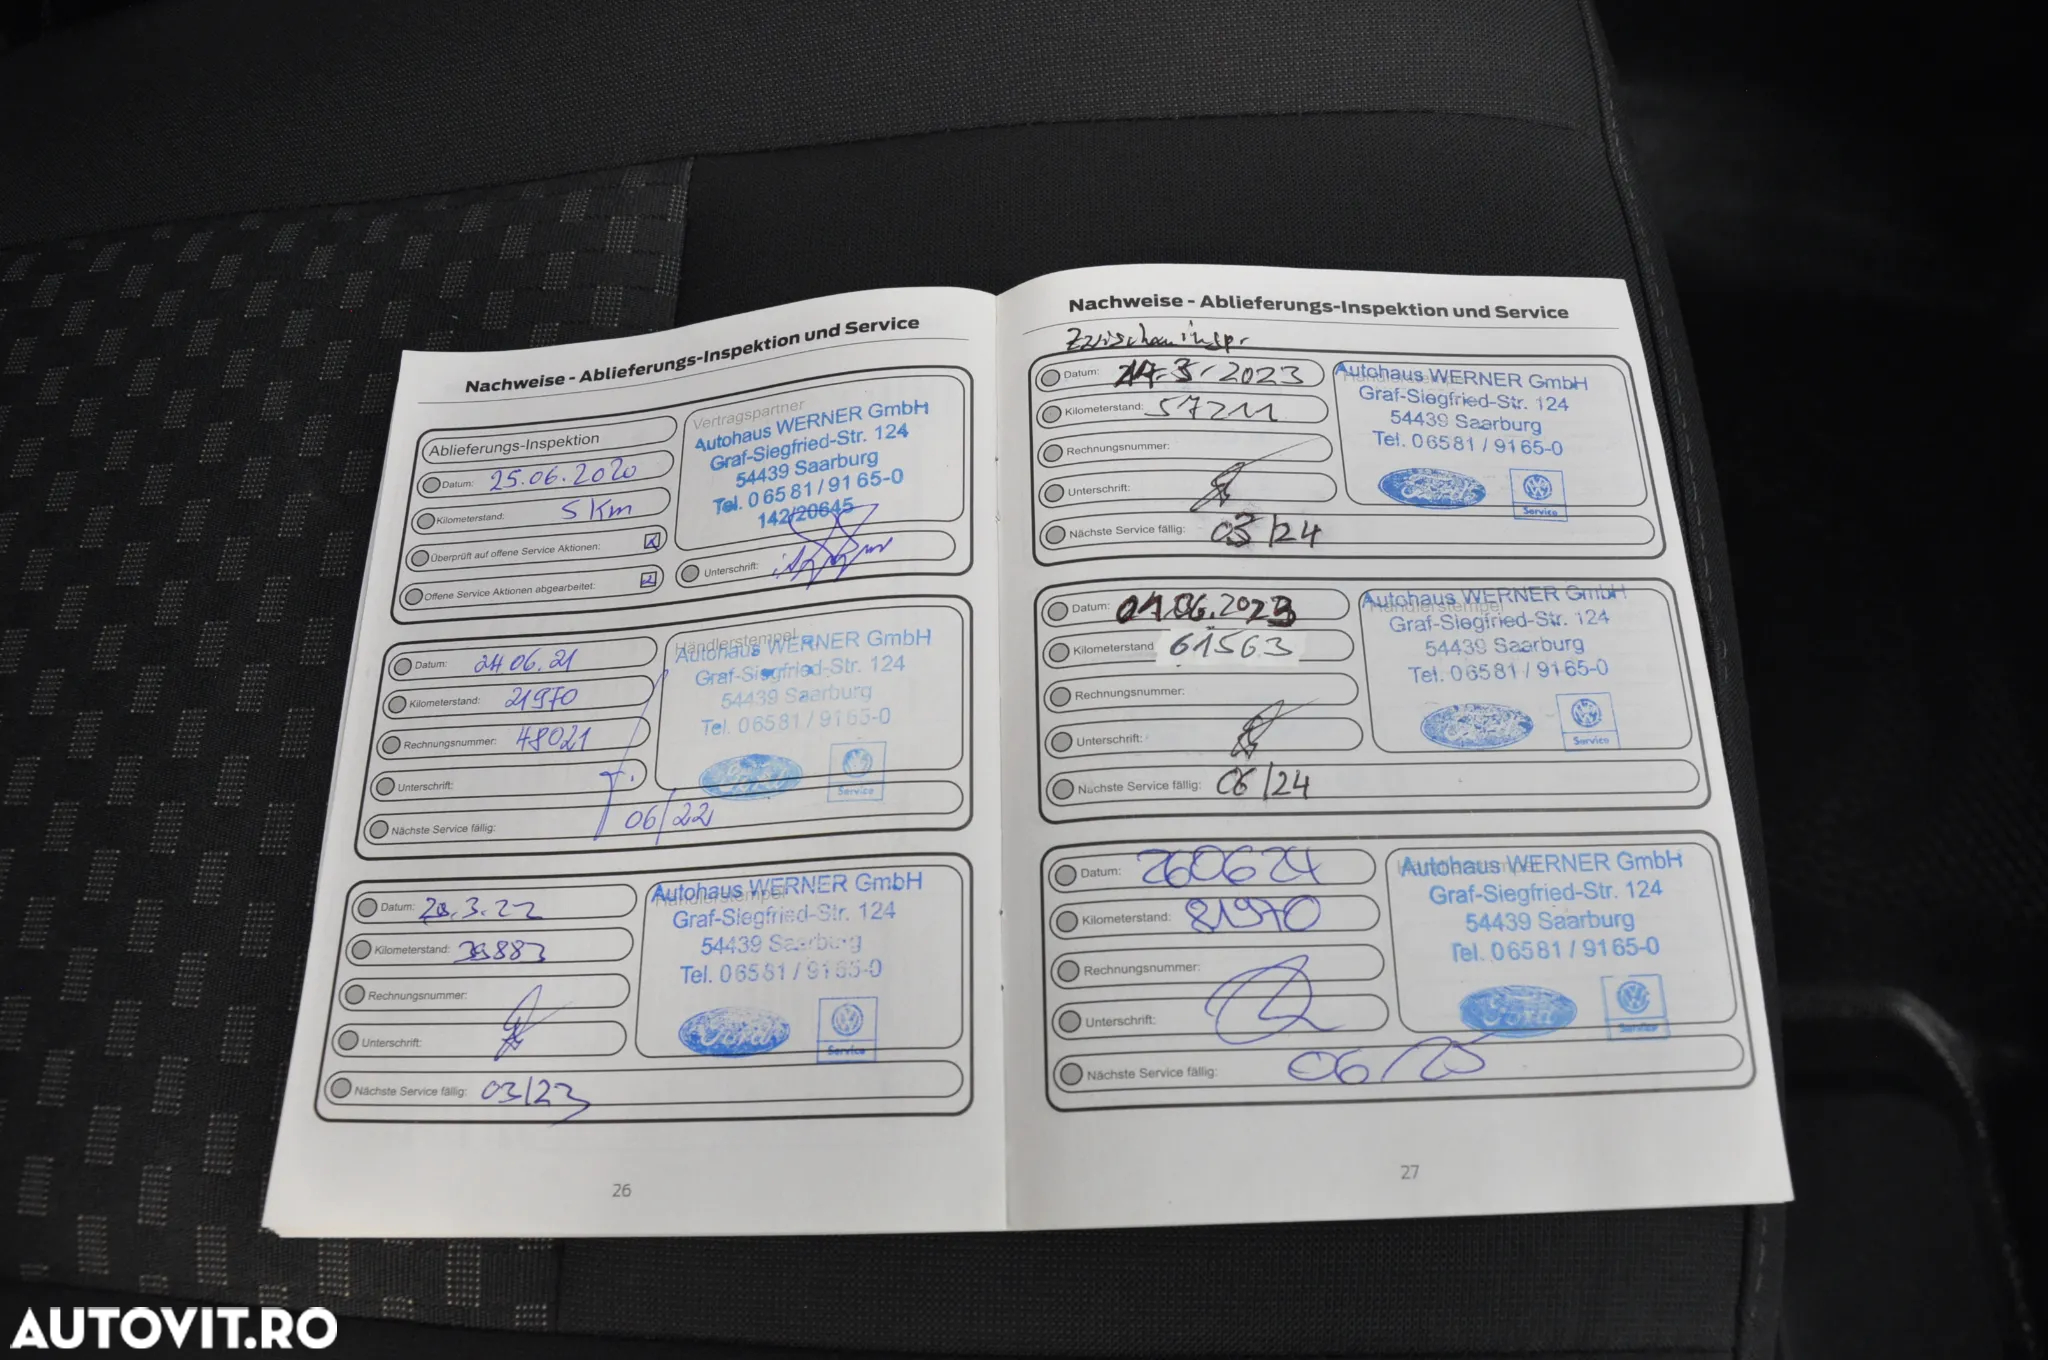 Nachweise - Ablieferungs-Inspektion und Service
Ablieferungs-Inspektion
Datum: 25.06.2020
Kilometerstand: 5 Km
Überprüft auf offene Service Aktionen:
Offene Service Aktionen abgearbeitet:
Vertragspartner
Autohaus WERNER GmbH
Graf-Siegfried-Str. 124
54439 Saarburg
Tel. 0 65 81 / 91 65-0
142/20645
Unterschrift:
Datum: 24.06.21
Kilometerstand: 21970
Rechnungsnummer: 48021
Unterschrift:
Nächste Service fällig: 06/22
Händlerstempel
Autohaus WERNER GmbH
Graf-Siegfried-Str. 124
54439 Saarburg
Tel. 0 65 81 / 91 65-0
Ford
Service
Datum: 3.22
Kilometerstand:
Rechnungsnummer:
Unterschrift:
Nächste Service fällig: 03/23
Händlerstempel
Autohaus WERNER GmbH
Graf-Siegfried-Str. 124
54439 Saarburg
Tel. 0 65 81 / 91 65-0
Ford
Service
26
Nachweise - Ablieferungs-Inspektion und Service
Zwischeninspr.
Datum: 3.2023
Kilometerstand: 57211
Rechnungsnummer:
Unterschrift:
Nächste Service fällig: 03/24
Autohaus WERNER GmbH
Graf-Siegfried-Str. 124
54439 Saarburg
Tel. 0 65 81 / 91 65-0
Ford
Service
Datum: 01.06.2023
Kilometerstand 61563
Rechnungsnummer:
Unterschrift:
Nächste Service fällig: 06/24
Händlerstempel
Autohaus WERNER GmbH
Graf-Siegfried-Str. 124
54439 Saarburg
Tel. 0 65 81 / 91 65-0
Service
Datum: 260624
Kilometerstand: 81970
Rechnungsnummer:
Unterschrift:
Nächste Service fällig: 06/25
Autohaus WERNER GmbH
Graf-Siegfried-Str. 124
54439 Saarburg
Tel. 0 65 81 / 91 65-0
Ford
Service
27
AUTOVIT.RO